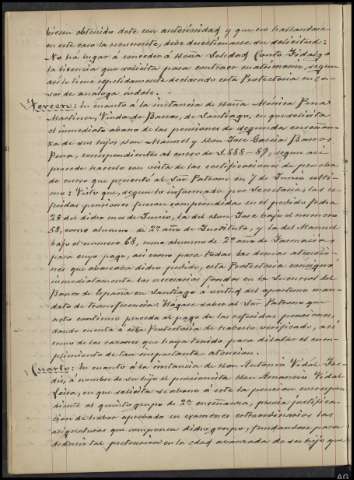 biesen obtenido dote con anterioridad y que en trasllantarse
en este caso la recurrente, debe desestimarse su solicitud:
No ha lugar á conceder á Doña Soledad Couto Fidalgo
la licencia que solicita para contraer matrimonio, segun
asi lo tiene repetidamente declarado esta Protectoria en ca-
sos de análoga indole.
Tercero: En cuanto á la instancia de Doña Monica Pena
Martinez, Viuda de Barros, de Santiago, en que solicita
el inmediato abono de las pensiones de segunda enseñan-
za de sus hijos Don Manuel y Don José Garcia Barros
Pena, correspondientes al curso de 1.888-89, segun asi
procede hacerlo con vista de las certificaciones de prueba
de curso que presentó al Sor Patrono en 7 de Junio últi-
mo: Visto que, segun lo informado por Secretaria, las re-
feridas pensiones fueron comprendidas en el pedido fecha
28 del dicho mes de Junio, la del Don José bajo el número
58, como alumno de 2º año de Instituto, y la del Manuel
bajo el número 68, como alumno de 2º año de Farmacia y
para cuyo pago, asi como para todas las demas atencio-
nes que abarcaba dicho pedido, esta Protectoria consignó
inmediatamente los necesarios fondos en la Sucursal del
Banco de España en Santiago á virtud del oportuno man-
dato de transferencia: Hágase saber al Sor Patrono que
acto continuo proceda al pago de las referidas pensiones,
dando cuenta á esta Protectoria de haberlo verificado, asi
como de las razones que haya tenido para dilatar el cum-
plimiento de tan importante atencion.
Cuarto: En cuanto á la instancia de Don Antonio Vidal Fa-
, á nombre de su hijo el pensionista Don Amancio Vidal
Leiro, en que solicita se abone á este la pension correspon-
diente al quinto grupo de 2ª enseñanza, previa justifica-
cion de haber aprobado en exámenes extraordinarios las
asignaturas que componen dicho grupo, fundándose para
deducir tal pretension en la edad avanzada de su hijo que
AG